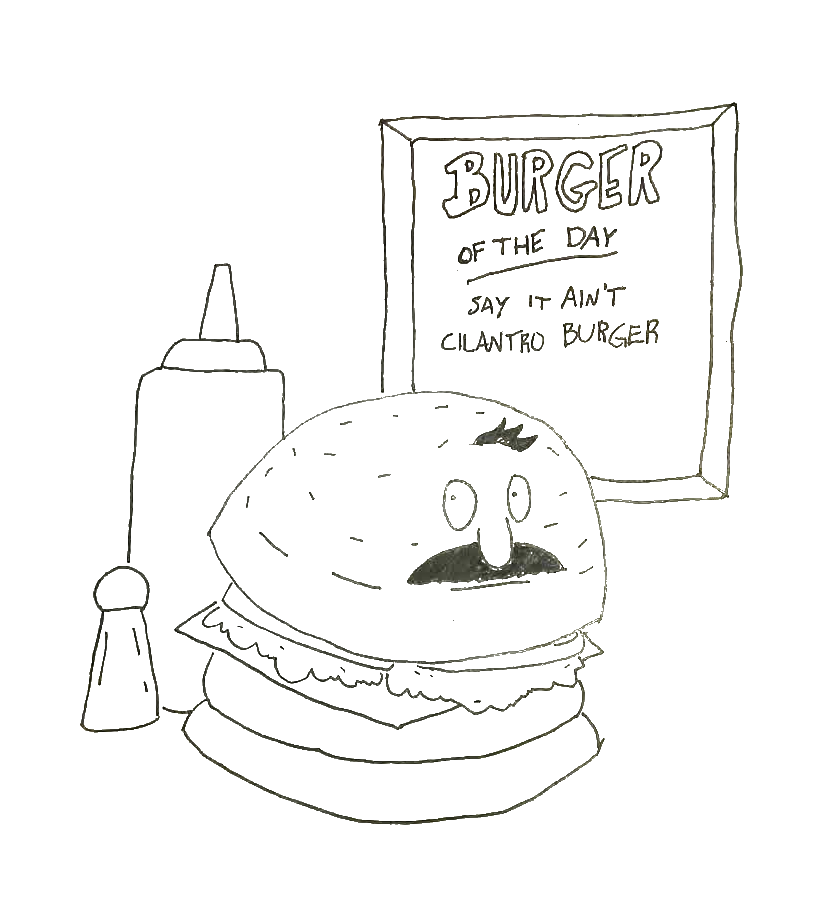 BURGER
OF THE DAY
SAY IT AIN'T
CILANTRO BURGER